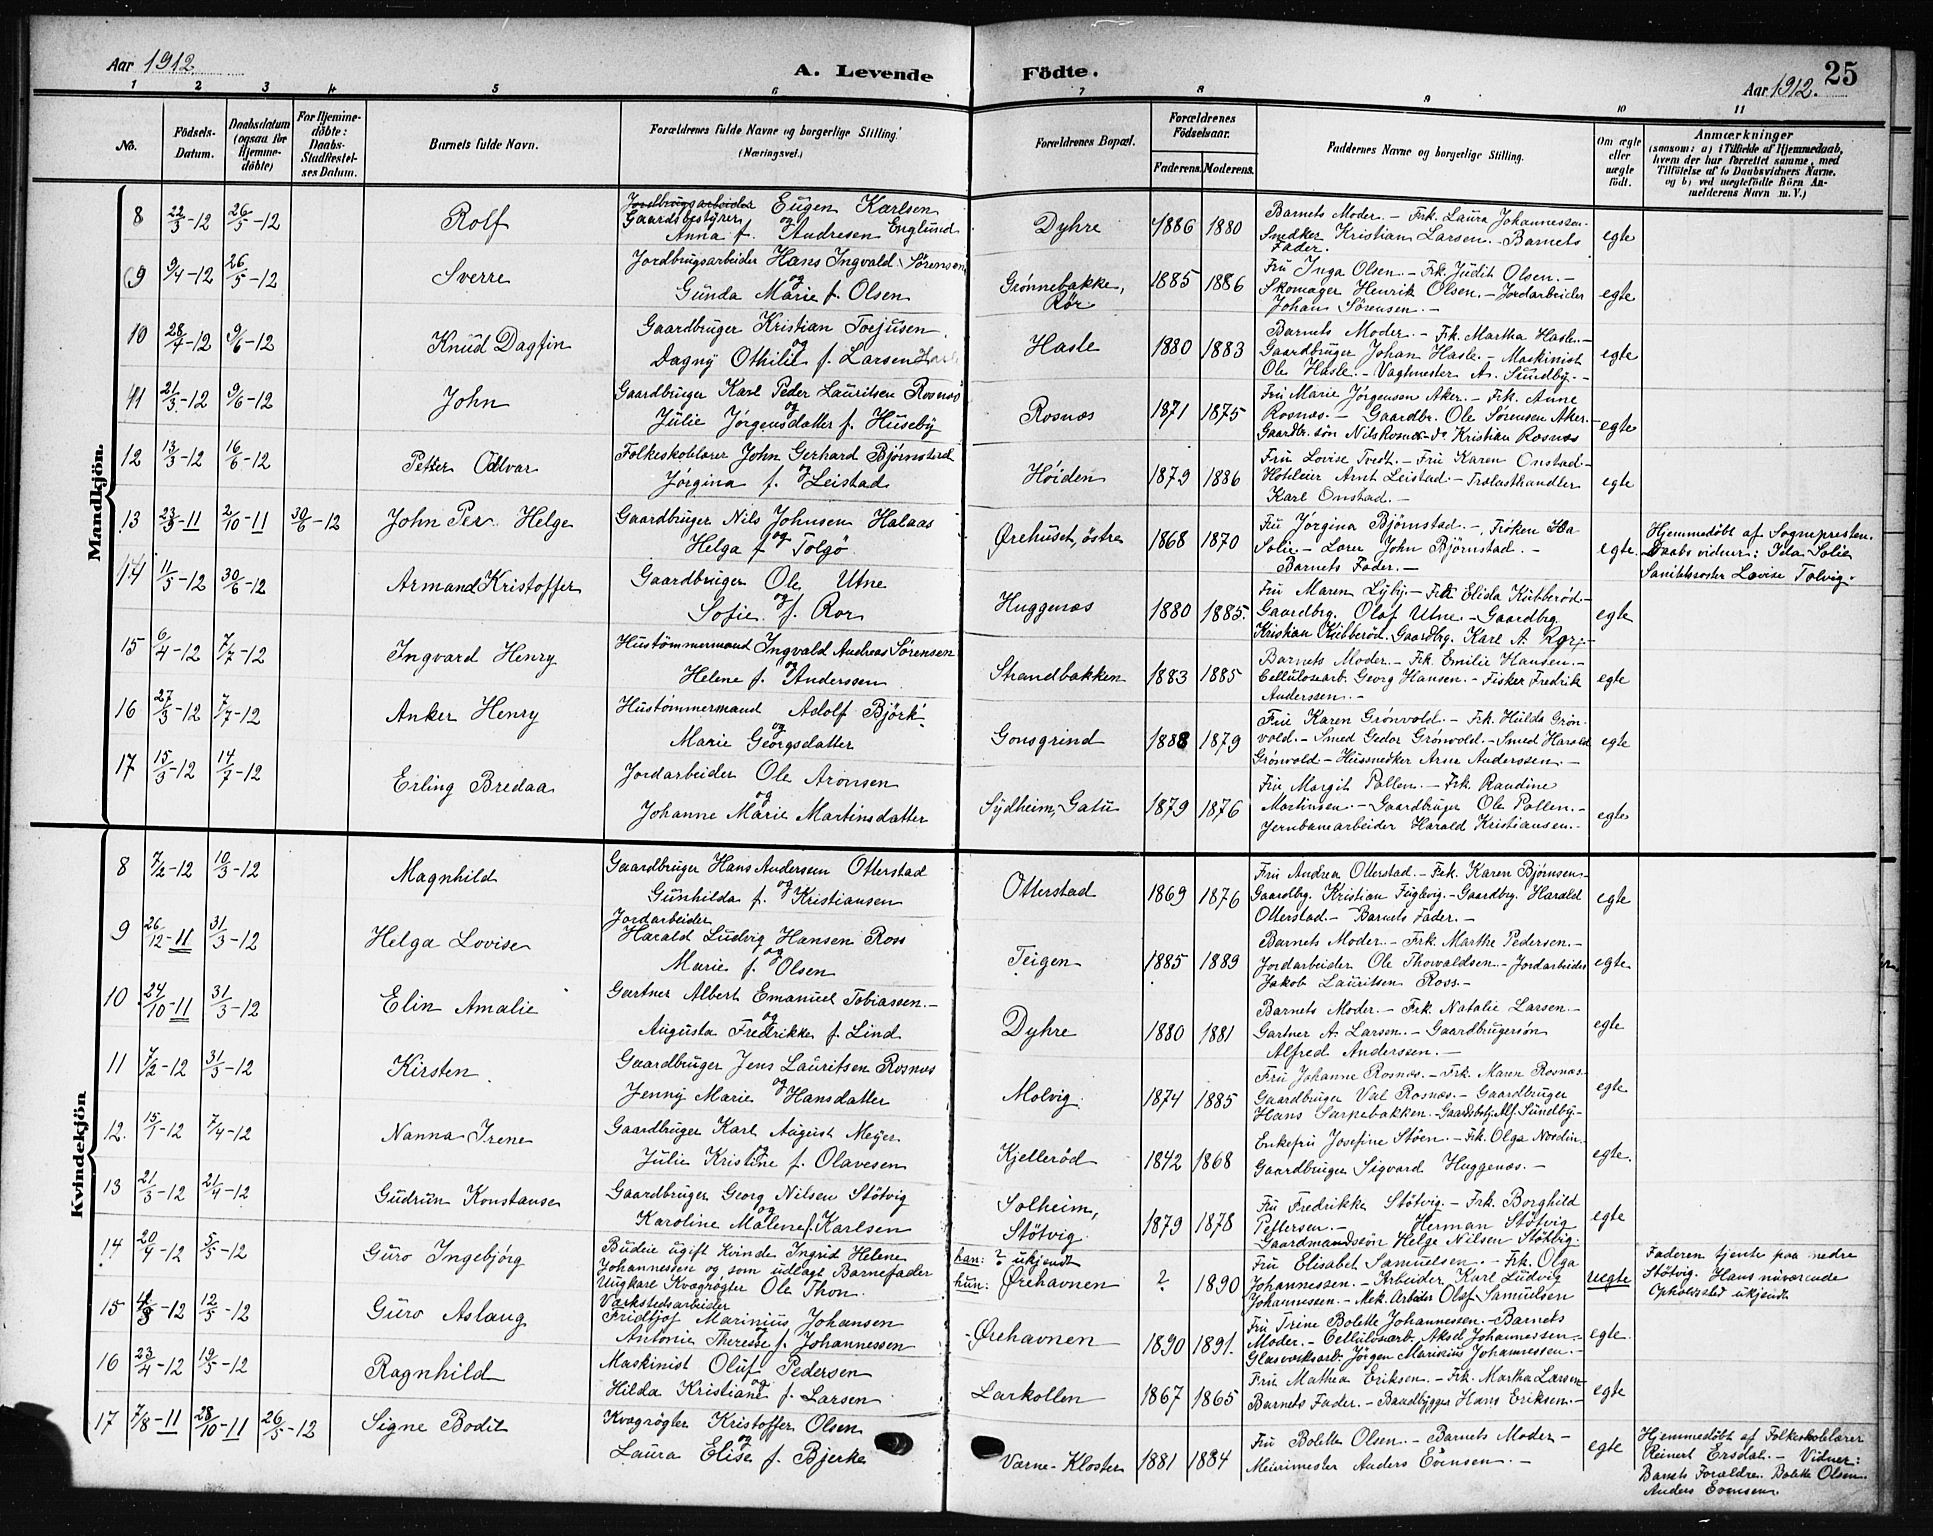 Aar 1912.
A. Levende Födte.
25
Aar 1912.
1 2 3 4 5 6 7 8 9 10 11
No.
Födsels-Datum.
Daabsdatum (ogsaa for Hjemme-döbte)
For Hjemme-döbte: Daabs-Stadfæstel-ses Datum.
Barnets fulde Navn.
Forældrenes fulde Navne og borgerlige Stilling. (Næringsvei.)
Forældrenes Bopæl.
Forældrenes Födselsaar.
Faderens. Moderens.
Faddernes Navne og borgerlige Stilling.
Om ægte eller uægte födt.
Anmærkninger
(saasom: a) i Tilfælde af Hjemmedaab, hvem der har forrettet samme, med Tilföielse af to Daabsvidners Navne, og b) ved uægtefödte Börn Anmelderens Navn m. V.)
Mandkjön.
8 22/3-12 26/5-12 Rolf
Jordbrugsarbeider Eugen Karlsen
Gaardsbestyrer og
Anna f. Andresen Englund
Dyhre 1886 1880
Barnets Moder. - Frk. Laura Johannessen-
Snedker Kristian Larsen. - Barnets
Fader.
egte
9 9/4-12 26/5-12 Sverre
Jordbrugsarbeider Hans Ingvald Sörensen
og
Gunda Marie f. Olsen
Grønnebakke, Rör 1885 1886
Fru Inga Olsen. - Frk. Judit Olsen. -
Skomager Henrik Olsen. - Jordarbeider
Johan Sörensen. -
egte
10 28/4-12 9/6-12 Knud Dagfin
Gaardbruger Kristian Torjusen
og
Dagny Othilie f. Larsen
Hasle 1880 1883
Barnets Moder. - Frk. Martha Hasle. -
Gaardbruger Johan Hasle. - Maskinist
Ole Hasle. - Vagtmester A. Sundby. -
egte
11 21/3-12 9/6-12 John
Gaardbruger Karl Peder Lauritsen Rosnæs
og
Julie Jörgensdatter f. Huseby
Rosnæs 1871 1875
Fru Marie Jörgensen Aker. - Frk. Anne
Rosnæs. - Gaardbr. Ole Sörensen Aker. -
Gaardbr. sön Nils Rosnæs - do Kristian Rosnæs
egte
12 13/3-12 16/6-12 Petter Odvar
Folkeskolelærer John Gerhard Björnstad
og
Jörgina f. Leistad
Höiden 1879 1886
Fru Lovise Tvedt. - Fru Karen Onstad-
Hoteleier Arnt Leistad - Trælasthandler
Karl Onstad. -
egte
13 23/3-11 2/10-11 30/6-12 John Per Helge
Gaardbruger Nils Johnsen Halaas
og
Helga f. Tolgö
Ørehuset, östre 1868 1870
Fru Jörgina Björnstad. - Fröken Ida
Solie - Lærer John Björnstad. -
Barnets Fader. -
egte
Hjemmedöbt af Sognepresten.
Daabsvidner: Ida Solie
Sanitetssöster Lovise Tolvig.
14 11/5-12 30/6-12 Armand Kristoffer
Gaardbruger Ole Utne
og
Sofie f. Rör
Huggenæs 1880 1885.
Fru Maren Lyby. - Frk. Elida Kubberöd. -
Gaardbrg. Olaf Utne - Gaardbrg.
Kristian Kubberöd. Gaardbrg. Karl A. Rör. -
egte
15 6/4-12 7/7-12 Ingvard Henry
Hustömmermand Ingvald Andreas Sörensen
og
Helene f. Anderssen
Strandbakken 1883 1885
Barnets Moder. - Frk. Emilie Hansen. -
Cellulosearb. Georg Hansen. - Fisker Fredrik
Anderssen. -
egte
16 27/3-12 7/7-12 Anker Henry
Hustömmermand Adolf Björk
og
Marie Georgsdatter
Gonsgrind 1888 1879
Fru Karen Grönvold. - Frk. Hulda Grön-
vold. - Smed Gedor Grönvold. - Smed Harald
Grönvold - Hussnedker Arne Anderssen. -
egte
17 15/3-12 14/7-12 Erling Bredaa
Jordarbeider Ole Aronsen
og
Johanne Marie Martinsdatter
Sydheim, Gatu 1879 1876
Fru Margit Pollen. - Frk. Randine
Martinsen. - Gaardbruger Ole Pollen. -
Jernbanearbeider Harald Kristiansen. -
egte
Kvindekjön
8 7/2-12 10/3-12 Magnhild
Gaardbruger Hans Andersen Otterstad
og
Gunhilda f. Kristiansen
Otterstad 1869 1876
Fru Andrea Otterstad. - Frk. Karen Björnsen. -
Gaardbg. Kristian Fuglevig. - Gaardbrg. Harald
Otterstad. - Barnets Fader. -
egte
9 26/12-11 31/3-12 Helga Lovise
Jordarbeider
Harald Ludvig Hansen Ross
og
Marie f. Olsen
Teigen 1885 1889
Barnets Moder. - Frk. Marthe Pedersen. -
Jordarbeider Ole Thorvaldsen - Jordarbeider
Jakob Lauritsen Ross. -
egte
10 24/10-11 31/3-12 Elin Amalie
Gartner Albert Emanuel Tobiassen. -
og
Augusta Fredrikke f. Lind
Dyhre 1880 1881
Barnets Moder - Frk. Natalie Larsen -
Gartner A. Larsen. - Gaardbrugersön
Alfred Anderssen. -
egte
11 7/2-12 31/3-12 Kirsten
Gaardbruger Jens Lauritsen Rosnæs
og
Jenny Marie Hansdatter
Molvig 1874 1885
Fru Johanne Rosnæs. - Frk. Maren Rosnæs
Gaardbruger Val Rosnæs. - Gaardbruger
Hans Sarpebakken. - Gaardsbest. Alf Sundby -
egte
12. 15/1-12 7/4-12 Nanna Irene
Gaardbruger Karl August Meyer
og
Julie Kristine f. Olavesen
Kjelleröd 1842 1868
Enkefru Josefine Stöen. - Frk. Olga Nordin
Gaardbruger Sigvard Huggenæs. -
egte.
13 21/3-12 21/4-12 Gudrun Konstanse
Gaardbruger Georg Nilsen Stötvig
og
Karoline Malene f. Karlsen
Solheim, Stötvig 1879 1878
Fru Fredrikke Stötvig. - Frk. Borghild
Pettersen. - Herman Stötvig
Gaardmandssön Helge Nilsen Stötvig
egte
14 20/4-12 5/5-12 Guro Ingebjörg
Budeie ugift Kvinde Ingrid Helene
Johannessen og som udlagt Barnefader
Ungkarl Kvægrögter Ole Thon.
han: ? ukjendt
hun: Ørehavnen ? 1890
Fru Elisabet Samuelsen. - Frk. Olga
Johannessen. - Arbeider Karl Ludvig
Johannessen. - Mek. Arbeider Olaf Samuelsen
uegte
Faderen tjente paa nedre
Stötvig. Hans nuværende
Opholdssted ukjendt.
15 4/3-12 12/5-12 Guro Aslaug
Værkstedsarbeider
Fridtjof Marinius Johansen
og
Antonie Therese f. Johannessen
Ørehavnen 1890 1891.
Fru Trine Bolette Johannessen - Barnets
Moder. - Cellulosearb. Aksel Johannessen -
Glasværksarb. Jörgen Marinius Johannessen. -
egte.
16 23/4-12 19/5-12 Ragnhild
Maskinist Oluf Pedersen
og
Hilda Kristiane f. Larsen
Larkollen 1867 1865
Fru Mathea Eriksen. - Frk. Martha Larsen
Barnets Fader. - Baadbygger Hans Eriksen. -
egte
17 7/8-11 28/10-11 26/5-12 Signe Bodil
Kvægrögter Kristoffer Olsen
og
Laura Elise f. Bjerke
Værne-Kloster 1881 1884
Fru Bolette Olsen. - Barnets Moder -
Meierimester Anders Evensen. -
egte
Hjemmedöbt af Folkeskolelærer
Reinert Ersdal. - Vidner:
Barnets Forældre. Bolette Olsen.
Anders Evensen.